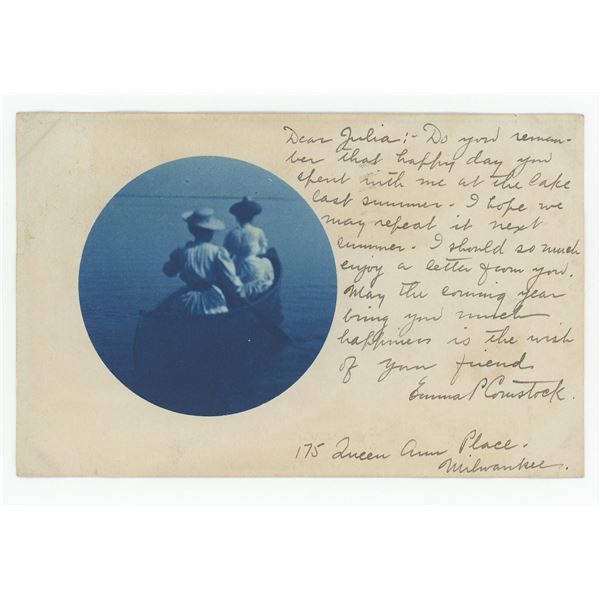 Dear Julia:- Do you remem-
ber that happy day you
spent with me at the lake
last summer. I hope we
may repeat it next
summer. I should so much
enjoy a letter from you.
May the coming year
bring you much
happiness is the wish
of your friend
Emma P Comstock.
175 Queen Ann Place.
Milwaukee.